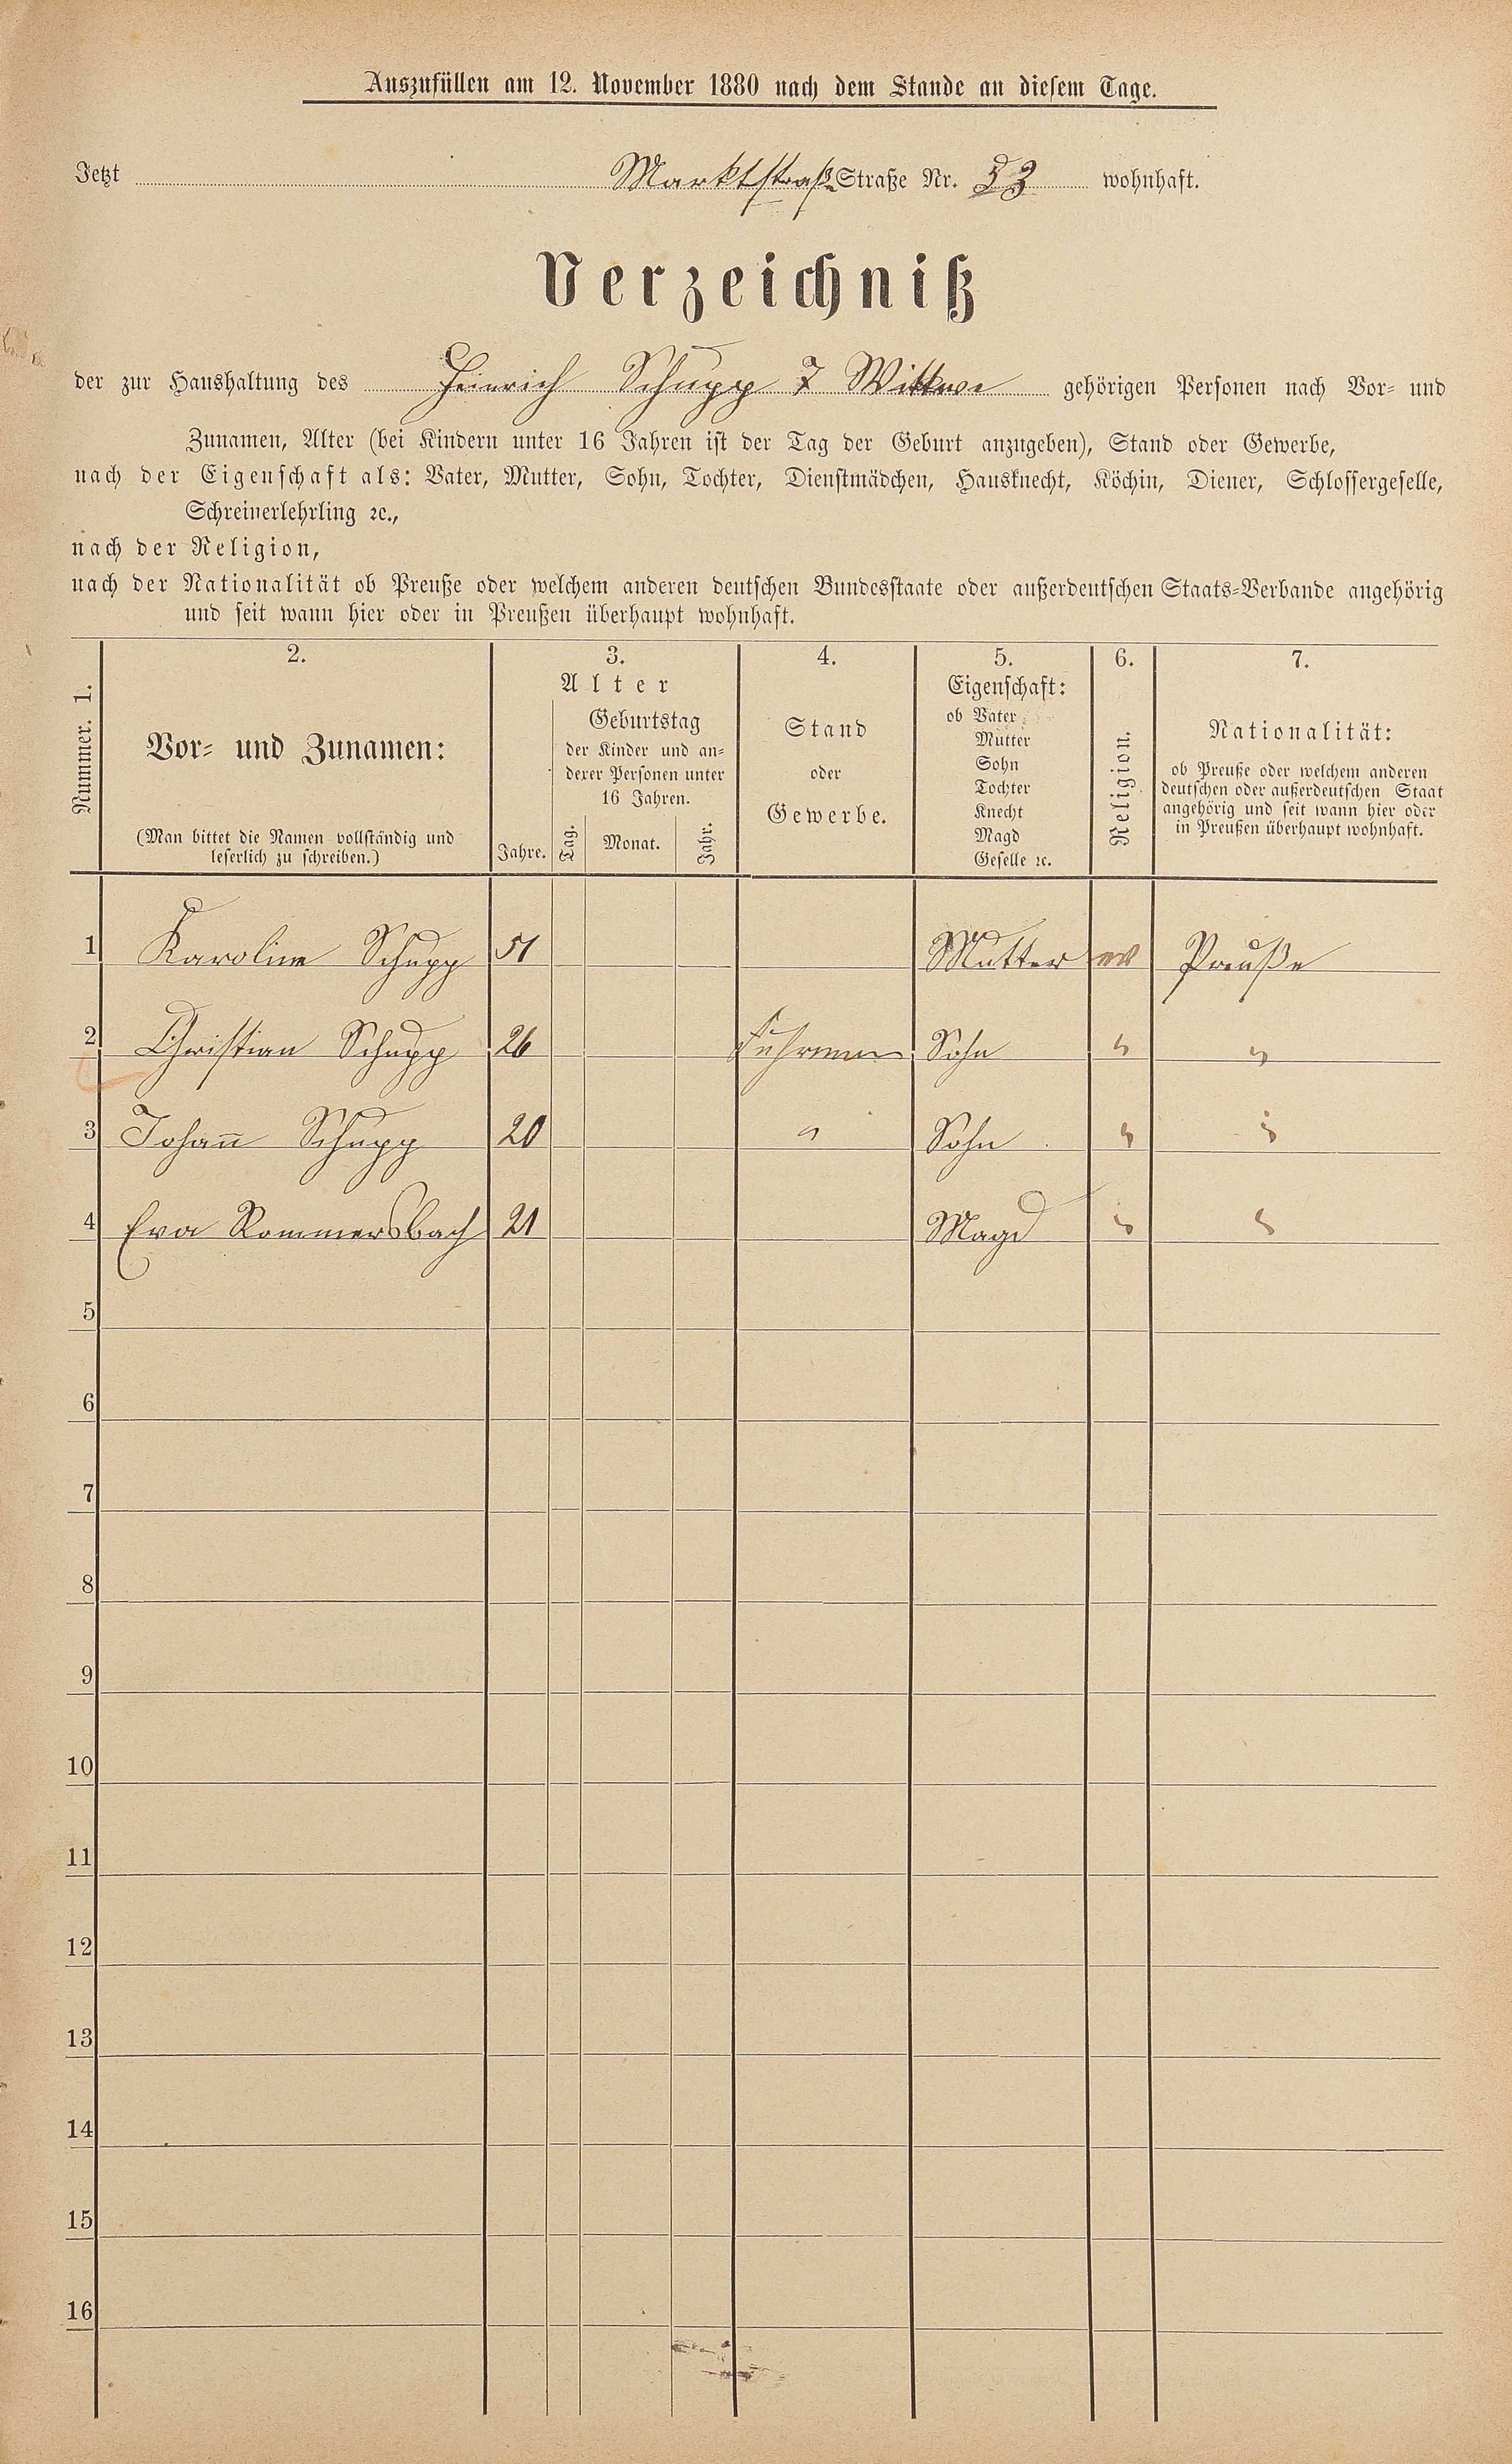 Auszufüllen am 12. November 1880 nach dem Stande an diesem Tage.
Jetzt Marktstraße Straße Nr. 53 wohnhaft.
Verzeichniß
der zur Haushaltung des Heinrich Schupp Wittwe gehörigen Personen nach Vor- und
Zunamen, Alter (bei Kindern unter 16 Jahren ist der Tag der Geburt anzugeben), Stand oder Gewerbe,
nach der Eigenschaft als: Vater, Mutter, Sohn, Tochter, Dienstmädchen, Hausknecht, Köchin, Diener, Schlossergeselle,
Schreinerlehrling ꝛc.,
nach der Religion,
nach der Nationalität ob Preuße oder welchem anderen deutschen Bundesstaate oder außerdeutschen Staats-Verbande angehörig
und seit wann hier oder in Preußen überhaupt wohnhaft.
Nummer. 1.
2.
Vor- und Zunamen:
(Man bittet die Namen vollständig und
leserlich zu schreiben.)
3.
Alter
Jahre.
Geburtstag
der Kinder und an-
derer Personen unter
16 Jahren.
Tag. Monat. Jahr.
4.
Stand
oder
Gewerbe.
5.
Eigenschaft:
ob Vater
Mutter
Sohn
Tochter
Knecht
Magd
Geselle ꝛc.
6.
Religion.
7.
Nationalität:
ob Preuße oder welchem anderen
deutschen oder außerdeutschen Staat
angehörig und seit wann hier oder
in Preußen überhaupt wohnhaft.
1 Karoline Schupp 51 Mutter ev Preuße
2 Christian Schupp 26 Fuhrmann Sohn " "
3 Johann Schupp 20 " Sohn " "
4 Eva Rommersbach 21 Magd " "
5
6
7
8
9
10
11
12
13
14
15
16